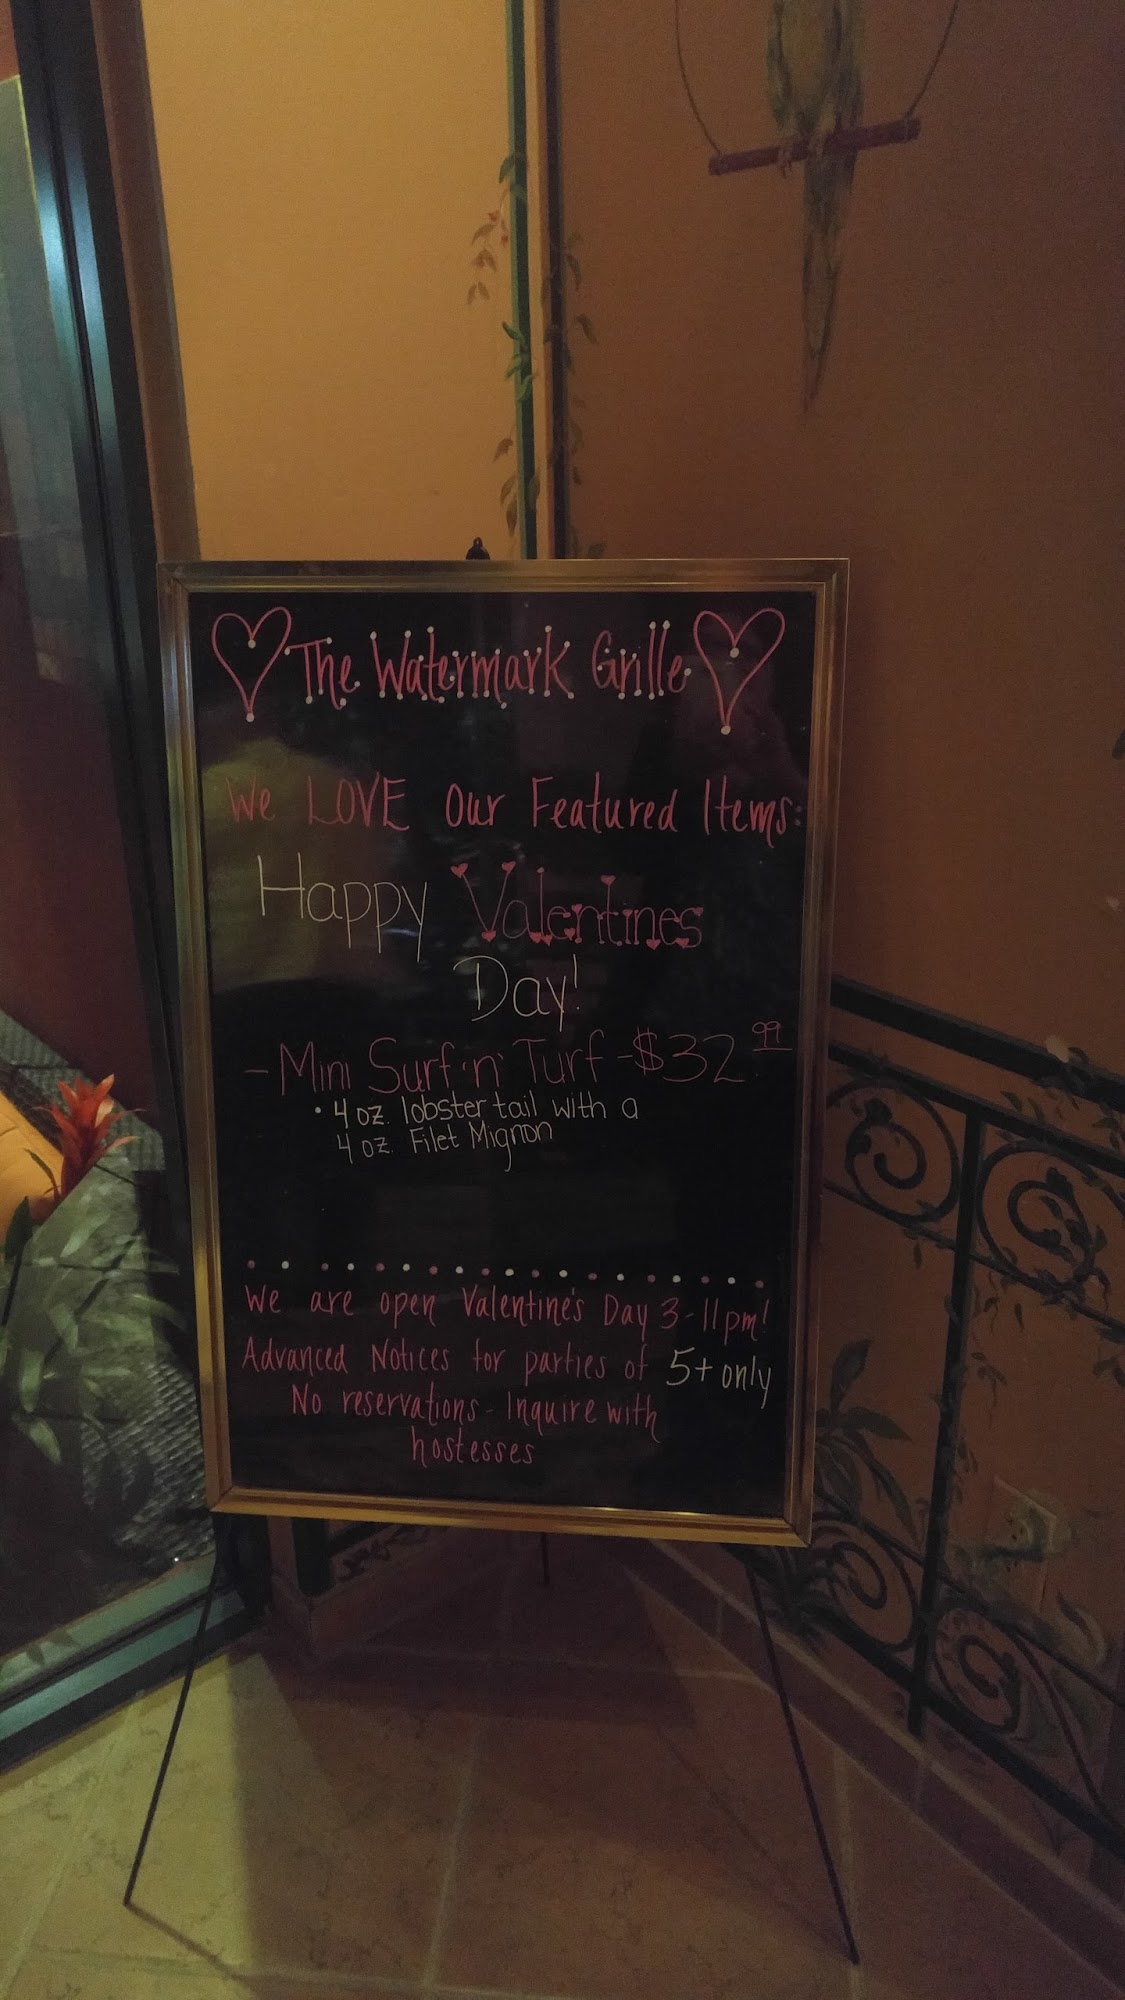 The Watermark Grille
We LOVE Our Featured Items:
Happy Valentines
Day!
- Mini Surf 'n' Turf - $32.99
• 4 oz. lobster tail with a
4 oz. Filet Mignon
We are open Valentine's Day 3-11pm!
Advanced Notices for parties of 5+ only
No reservations - Inquire with
hostesses